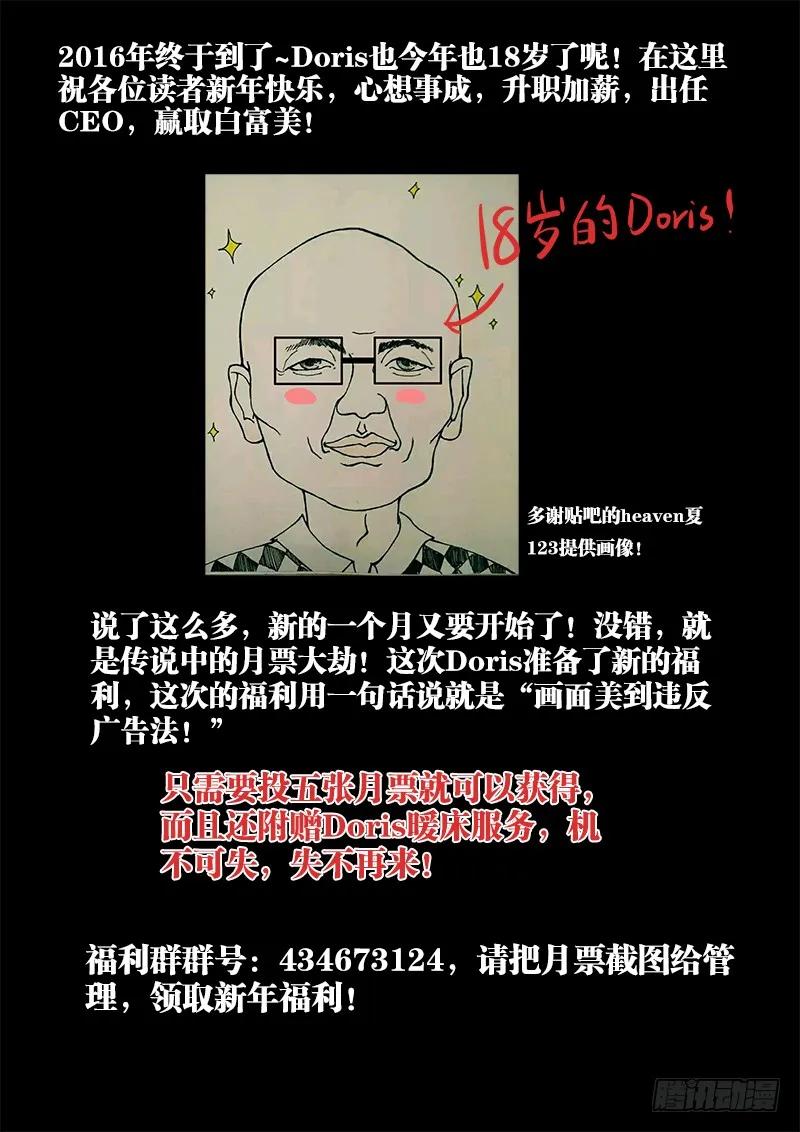 2016年终于到了~Doris也今年也18岁了呢！在这里
祝各位读者新年快乐，心想事成，升职加薪，出任
CEO，赢取白富美！
18岁的Doris！
多谢贴吧的heaven夏
123提供画像！
说了这么多，新的一个月又要开始了！没错，就
是传说中的月票大劫！这次Doris准备了新的福
利，这次的福利用一句话说就是“画面美到违反
广告法！”
只需要投五张月票就可以获得，
而且还附赠Doris暖床服务，机
不可失，失不再来！
福利群群号：434673124，请把月票截图给管
理，领取新年福利！
腾讯动漫